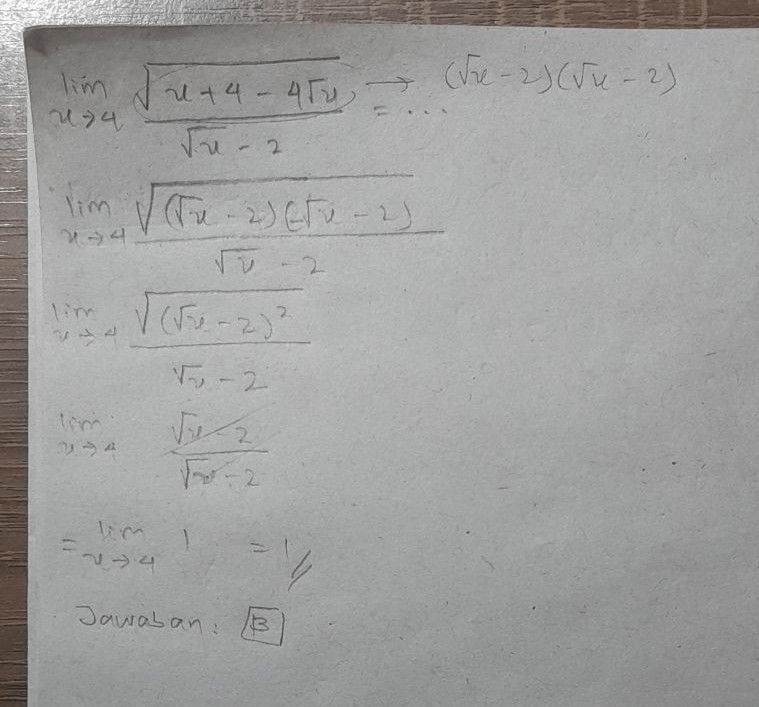 lim x→4 √(x+4-4√x) / (√x - 2) = ... → (√x-2)(√x-2)
lim x→4 √((√x-2)(√x-2)) / (√x - 2)
lim x→4 √((√x-2)²) / (√x - 2)
lim x→4 (√x-2) / (√x-2)
= lim x→4 1 = 1 //
Jawaban: B